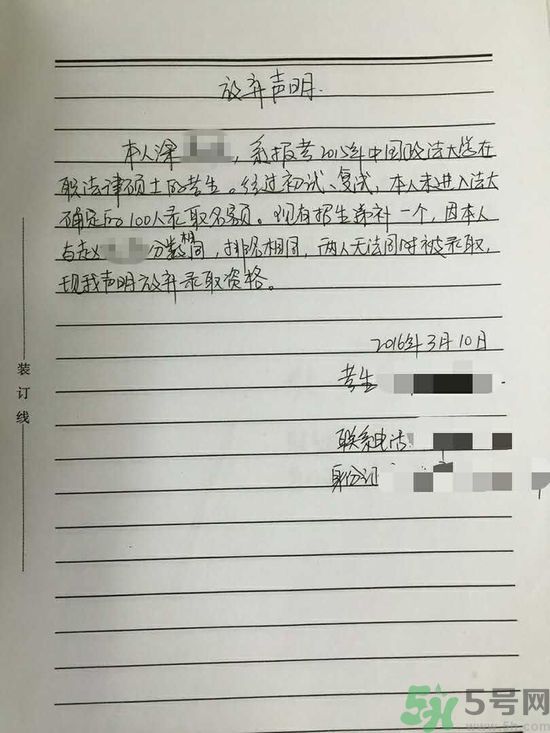 放弃声明.
本人涂 , 系报考2015年中国政法大学在
职法律硕士的考生。经过初试、复试, 本人未进入法大
确定的100人录取名额。现有招生候补一个, 因本人
与赵 分数相同, 排名相同, 两人无法同时被录取,
现我声明放弃录取资格。
2016年3月10日
考生
联系电话:
身份证
装订线
5号网
www.5h.com